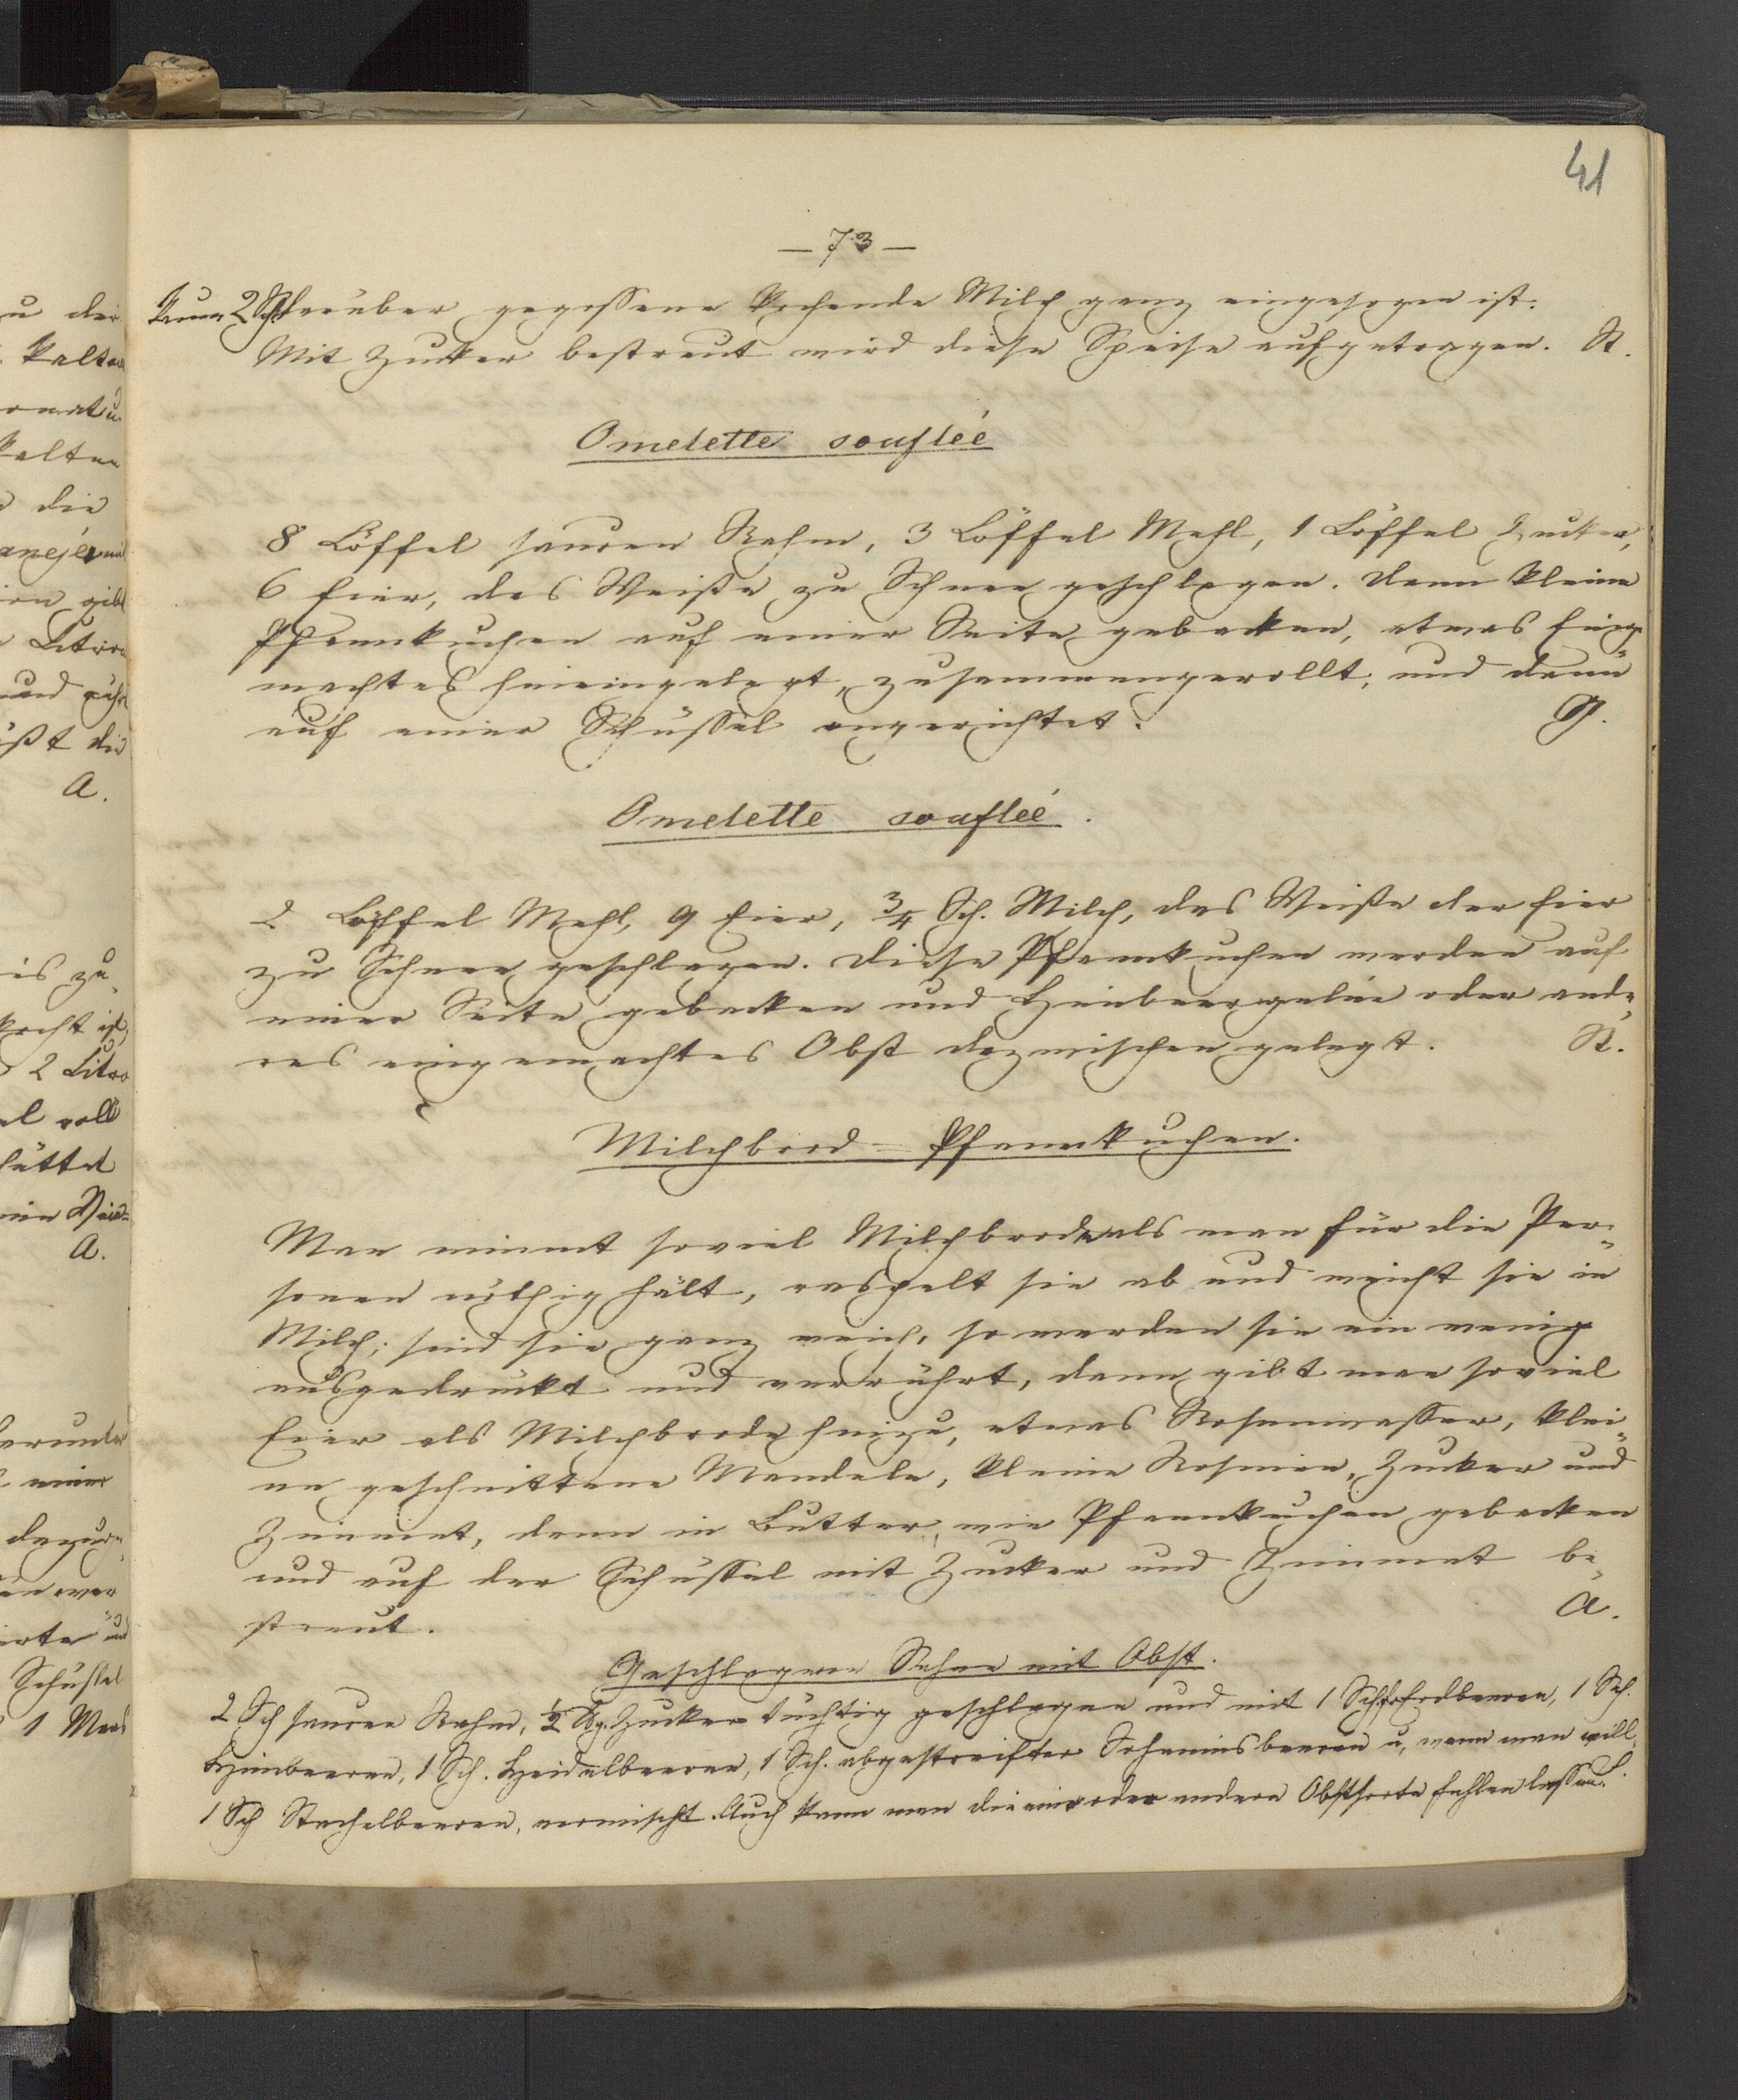 41
— 73 —
darüber gegossene kochende Milch ganz eingesogen ist.
Mit Zucker bestreut wird diese Speise aufgetragen. St.
Omelette soufleé
8 Löffel sauren Rahm, 3 Löffel Mehl, 1 Löffel Zucker,
6 Eier, das Weiße zu Schnee geschlagen. Dann kleine
Pfannkuchen auf einer Seite gebacken, etwas Einge
machtes hineingelegt, zusammengerollt, und dann
auf einer Schüssel angerichtet. G.
Omelette soufleé.
2 Löffel Mehl, 9 Eier, 3/4 Sch. Milch, das Weiße der Eier
zu Schnee geschlagen. Diese Pfannkuchen werden auf
einer Seite gebacken und Himbeergelée oder ande„
res eingemachtes Obst dazwischen gelegt. St.
Milchbrod-Pfannkuchen.
Man nimmt soviel Milchbrode als man für die Per„
sonen nöthig hält, raspelt sie ab und weicht sie in
Milch; sind sie ganz weich, so werden sie ein wenig
ausgedrückt und verrührt, dann gibt man soviel
Eier als Milchbrode hinzu, etwas Rosenwasser, klei„
ne geschnittene Mandeln, kleine Rosinen, Zucker und
Zimmet, dann in Butter, wie Pfannkuchen gebacken
und auf der Schüssel mit Zucker und Zimmet be„
streut. A.
Geschlagene Sahne mit Obst.
2 Sch sauren Rahm, 1/2 Kg. Zucker tüchtig geschlagen und mit 1 Sch. Erdbeeren, 1 Sch.
Himbeeren, 1 Sch. Heidelbeeren, 1 Sch. abgestreifter Johannisbeeren u, wenn man will,
1 Sch Stachelbeeren, vermischt. Auch kann man die eine oder andere Obstsorte fehlen lassen.